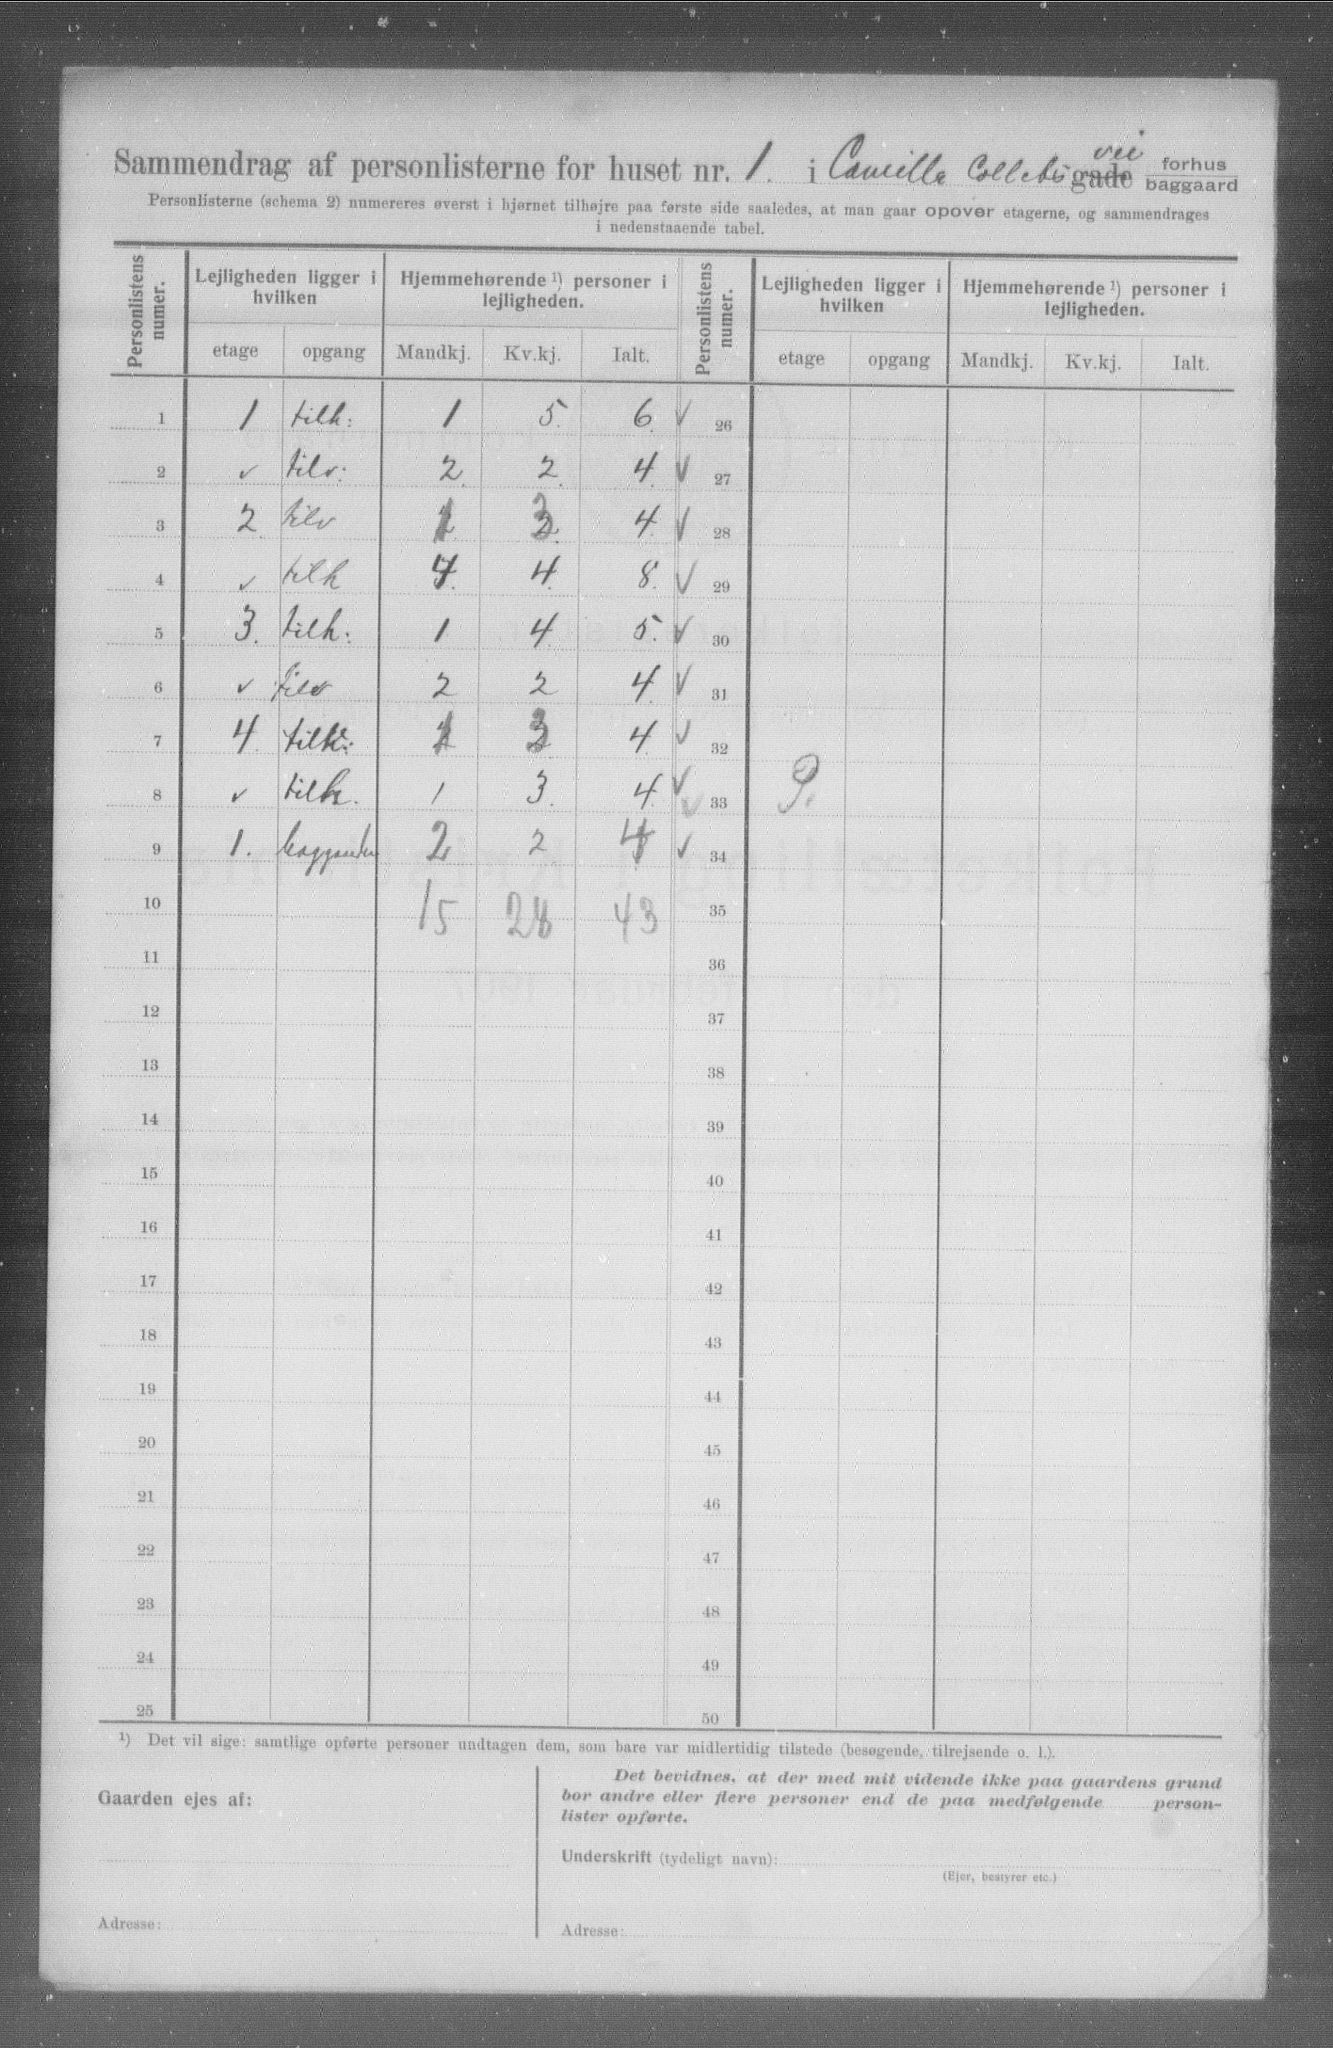 Sammendrag af personlisterne for huset nr. 1. i Camilla Collets gade vei forhus baggaard
Personlisterne (schema 2) numereres øverst i hjørnet tilhøjre paa første side saaledes, at man gaar opover etagerne, og sammendrages
i nedenstaaende tabel.
Personlistens numer. Lejligheden ligger i hvilken Hjemmehørende ¹) personer i lejligheden. Personlistens numer. Lejligheden ligger i hvilken Hjemmehørende ¹) personer i lejligheden.
etage opgang Mandkj. Kv.kj. Ialt. etage opgang Mandkj. Kv.kj. Ialt.
1 1 tilh: 1 5. 6. ✓ 26
2 ✓ tilv: 2. 2. 4. ✓ 27
3 2 tilv 1 3 4. ✓ 28
4 ✓ tilh 4. 4. 8. ✓ 29
5 3. tilh: 1 4. 5. ✓ 30
6 ✓ tilv 2 2 4. ✓ 31
7 4. 1 3 4. ✓ 32
8 ✓ 1 3. 4. ✓ 33 9.
9 1. baggaarden 2 2 4 ✓ 34
10 15 28 43 35
11 36
12 37
13 38
14 39
15 40
16 41
17 42
18 43
19 44
20 45
21 46
22 47
23 48
24 49
25 50
¹) Det vil sige: samtlige opførte personer undtagen dem, som bare var midlertidig tilstede (besøgende, tilrejsende o. l.).
Gaarden ejes af:
Adresse:
Det bevidnes, at der med mit vidende ikke paa gaardens grund
bor andre eller flere personer end de paa medfølgende person-
lister opførte.
Underskrift (tydeligt navn):
(Ejer, bestyrer etc.)
Adresse: